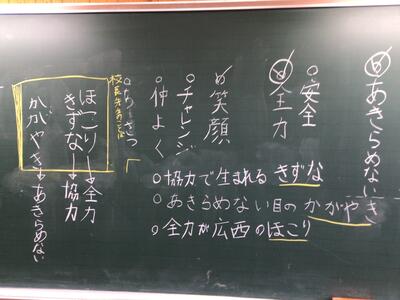 あきらめない
○安全
全力
笑顔
○チャレンジ
○仲よく
○協力で生まれるきずな
○あきらめない目のかがやき
○全力が広西のほこり
ほこり→全力
きずな→協力
かがやき→あきらめない